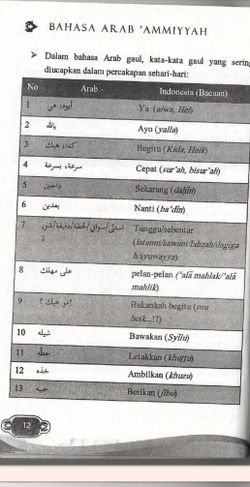 BAHASA ARAB 'AMMIYYAH
➤ Dalam bahasa Arab gaul, kata-kata gaul yang sering
diucapkan dalam percakapan sehari-hari:
No Arab Indonesia (Bacaan)
1 أيوه، هي Ya (aiwa, Hei)
2 يالله Ayo (yalla)
3 كده، هيك Begitu (Kida, Heik)
4 سرعة، بسرعة Cepat (sur'ah, bisur'ah)
5 داحين Sekarang (daḥīn)
6 بعدين Nanti (ba'dīn)
7 Tunggu/sebentar
(istanni/sawāni/laḥzah/dagīga
h/syuwayya)
8 على مهلك pelan-pelan ('alā mahlak/'alā
mahlik)
9 مو هيك ؟ Bukankah begitu (mu
heik...!?)
10 شيله Bawakan (Syīlu)
11 حطه Letakkan (khuṭṭu)
12 خذه Ambilkan (khuzu)
13 جيبه Berikan (jību)
12